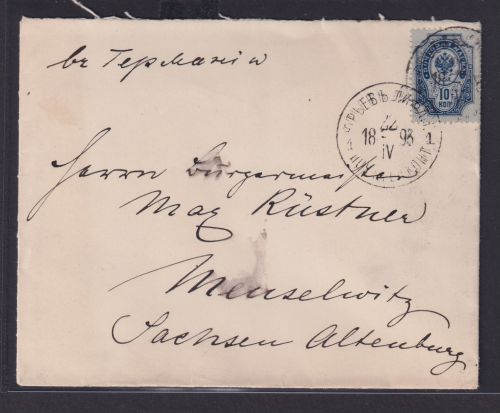 въ Германiи
ЮРЬЕВЪ ЛИФЛЯНД.
22
18 96
IV
1
10
КОП.
Herrn Bürgermeister
Max Rüstner
Meuselwitz
Sachsen Altenburg